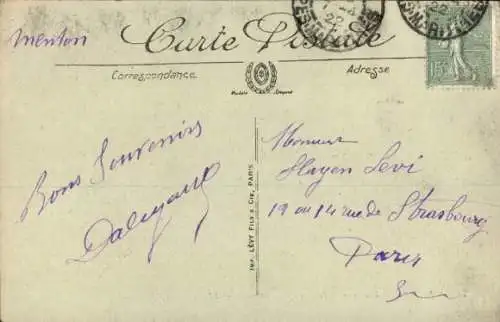 Menton
Carte Postale
Correspondance
Adresse
Modèle Déposé
15
22
Bons Souvenirs
Monsieur
Hayen Levi
19 ou 14 rue de Strasbourg
Paris
IMP. LÉVY FILS & Cie, PARIS